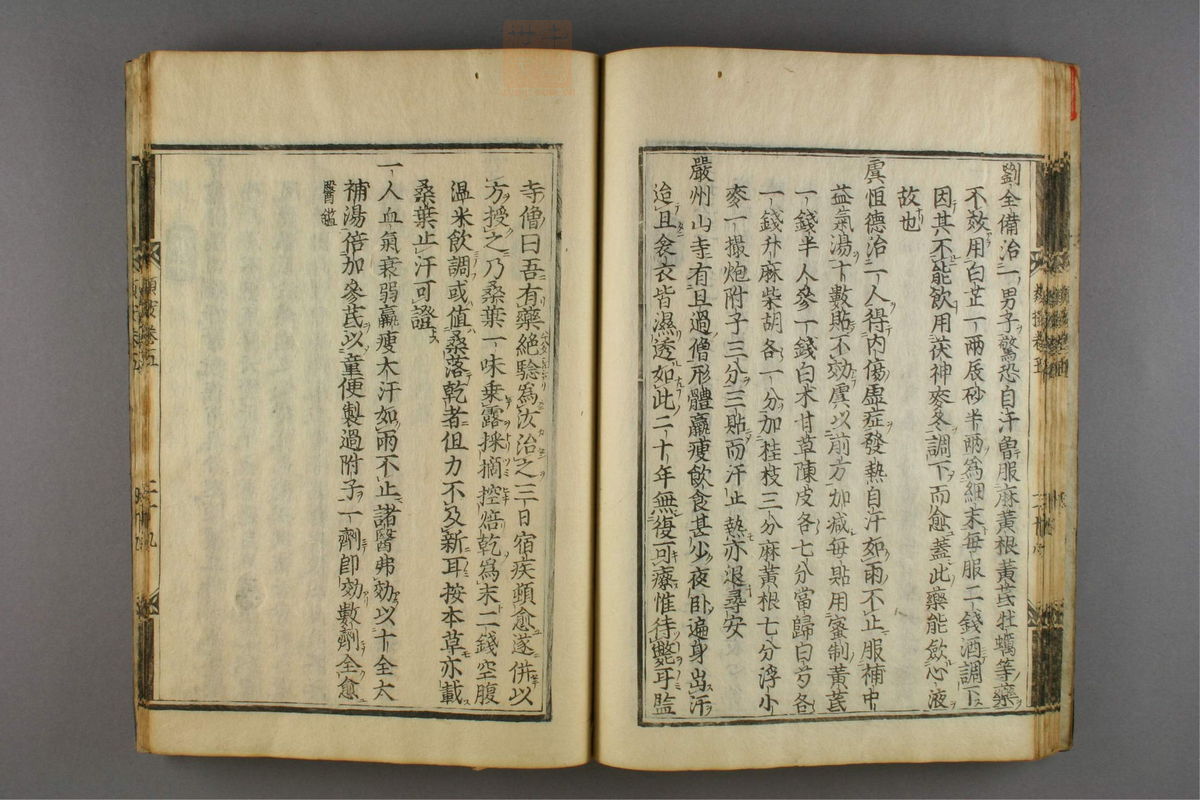 劉全備治一男子驚恐自汗魯服麻黃根黃芪牡蠣等藥
不效用白芷一兩辰砂半兩爲細末每服二錢酒調下
因其不能飲用茯神麥冬調下而愈蓋此藥能斂心液
故也
虞恒德治一人得內傷虛症發熱自汗如雨不止服補中
益氣湯十數貼不効虞以前方加减每貼用蜜制黃芪
一錢半人參一錢白朮甘草陳皮各七分當歸白芍各
一錢升麻柴胡各一分加桂枝三分麻黃根七分浮小
麥一撮炮附子三分三貼而汗止熱亦退尋安
嚴州山寺有旦過僧形體羸瘦飲食甚少夜卧遍身出汗
迨且衾衣皆濕透如此二十年無復可療惟待斃耳監
寺僧曰吾有藥絕驗爲汝治之三日宿疾頓愈遂併以
方授之乃桑葉一味乗露採摘控焙乾爲末二錢空腹
温米飲調或值桑落乾者但力不及新耳按本草亦載
桑葉止汗可證
一人血氣衰弱羸瘦大汗如雨不止諸醫弗効以十全大
補湯倍加參芪以童便製過附子一劑即効數劑全愈
醫鑑